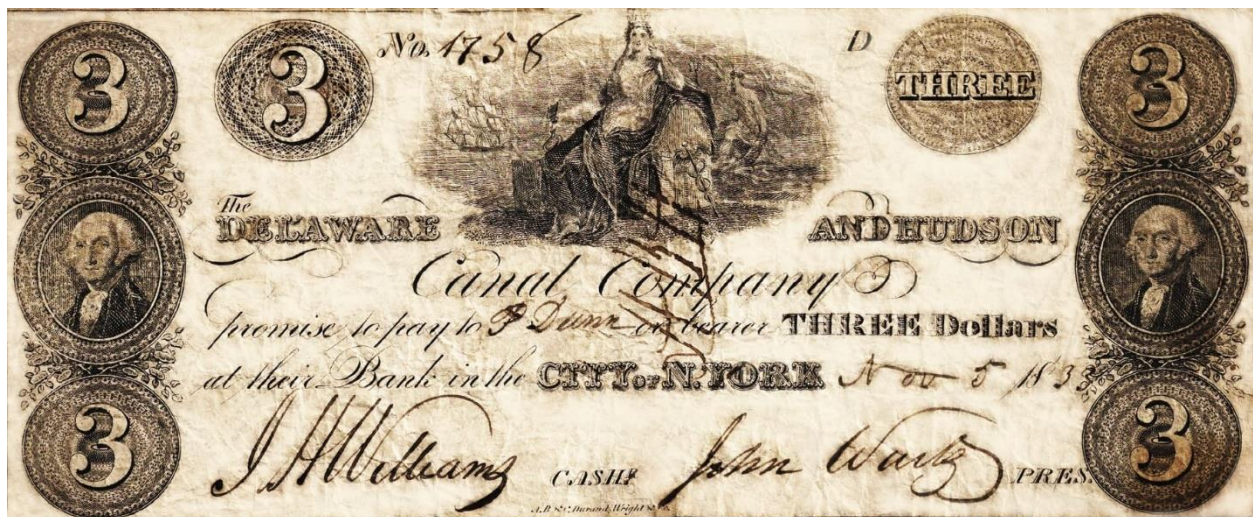 3 3 No. 1758 D THREE 3
The
DELAWARE AND HUDSON
Canal Company
promise to pay to P Dunn or bearer THREE Dollars
at their Bank in the CITY OF N. YORK Nov 5 183
3 J H Williams CASHR John Wurts PRES. 3
A.B & C. Durand, Wright & Co.